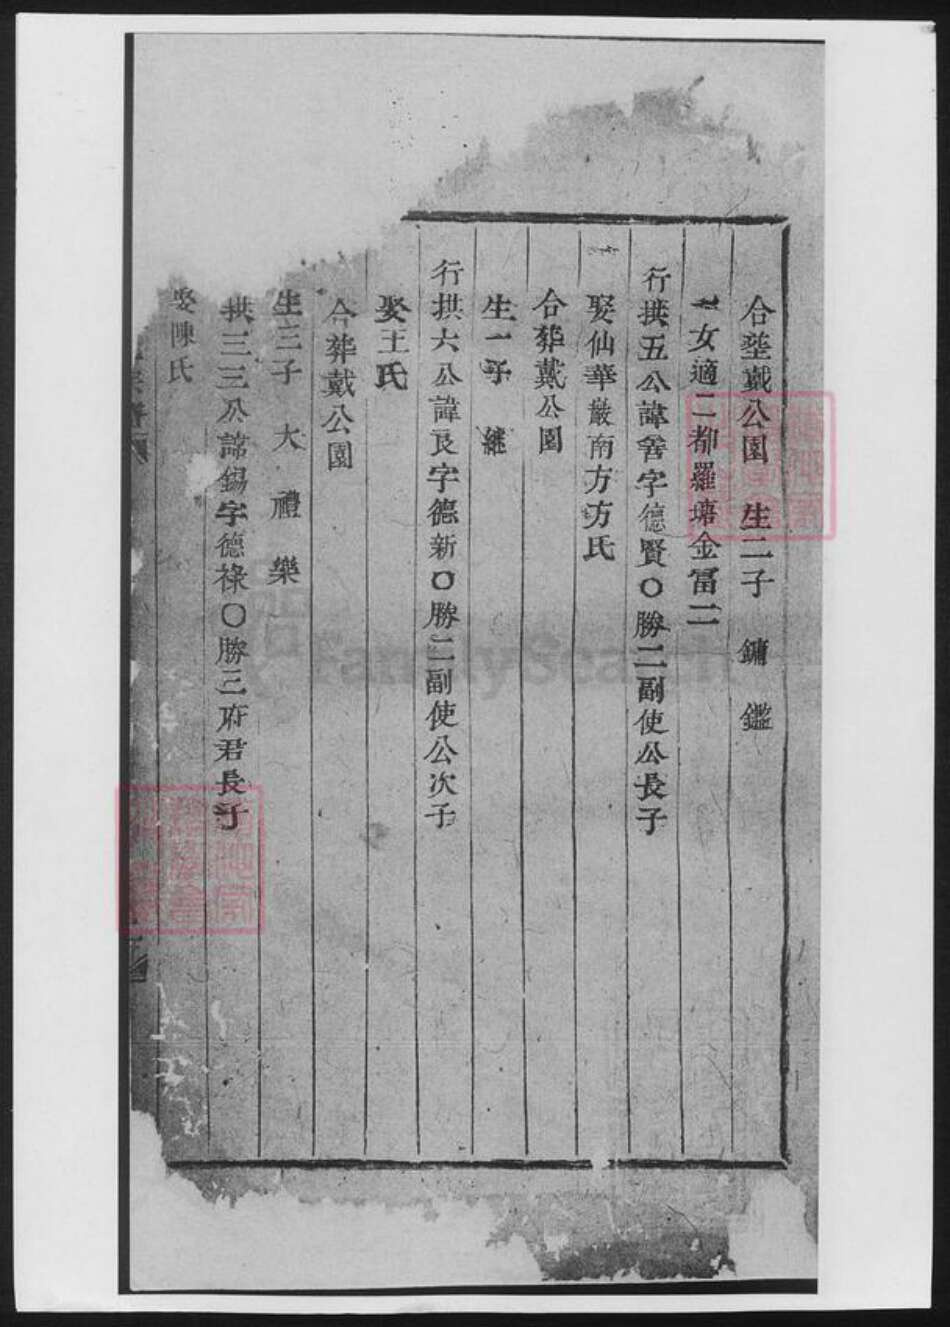 合塟戴公園 生二子 鏞 鑑
一女適二都羅塘金富二
行拱五公諱善字德賢〇勝二副使公長子
娶仙華巖南方方氏
合葬戴公園
生一子 繼
行拱六公諱良字德新〇勝二副使公次子
娶王氏
合葬戴公園
生三子 大 禮 樂
拱三三公諱錫字德祿〇勝三府君長子
娶陳氏
FamilySearch